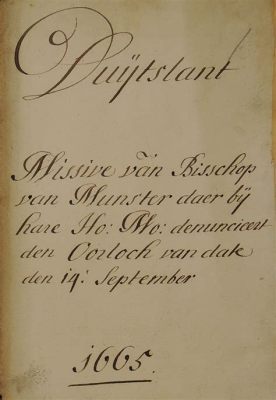 Duÿtslant
Missive van Bisschop
van Munster daer bÿ
hare Ho: Mo: denuncieert
den Oorloch van date
den 14: September
1665.